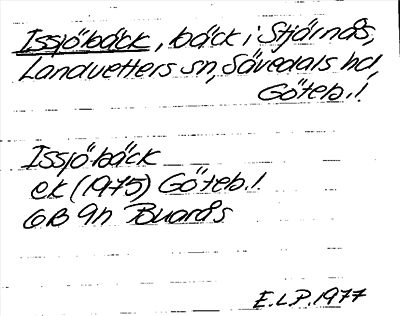 Issjöbäck, bäck i Stjärnås,
Landvetters sn, Sävedals hd,
Göteb. l.
Issjöbäck
ek (1975) Göteb. l.
6B 9h Buarås
E.L.P. 1977